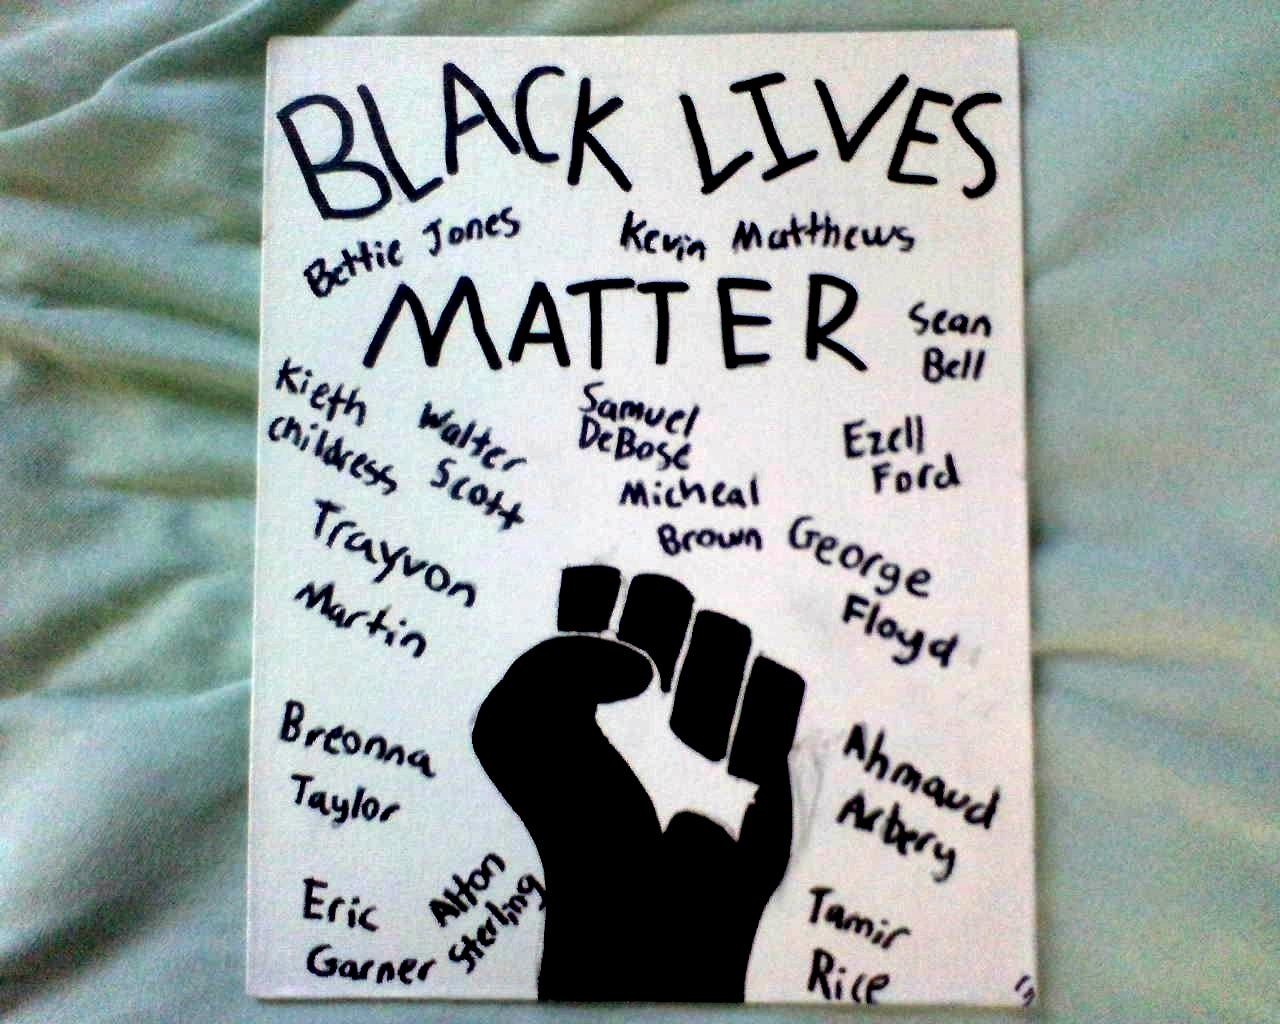 BLACK LIVES
Bettie Jones
Kevin Matthews
MATTER
Sean
Bell
Kieth
childress
Walter
Scott
Samuel
DeBose
Ezell
Ford
Micheal
Brown
Trayvon
Martin
George
Floyd
Breonna
Taylor
Ahmaud
Arbery
Eric
Garner
Alton
Sterling
Tamir
Rice